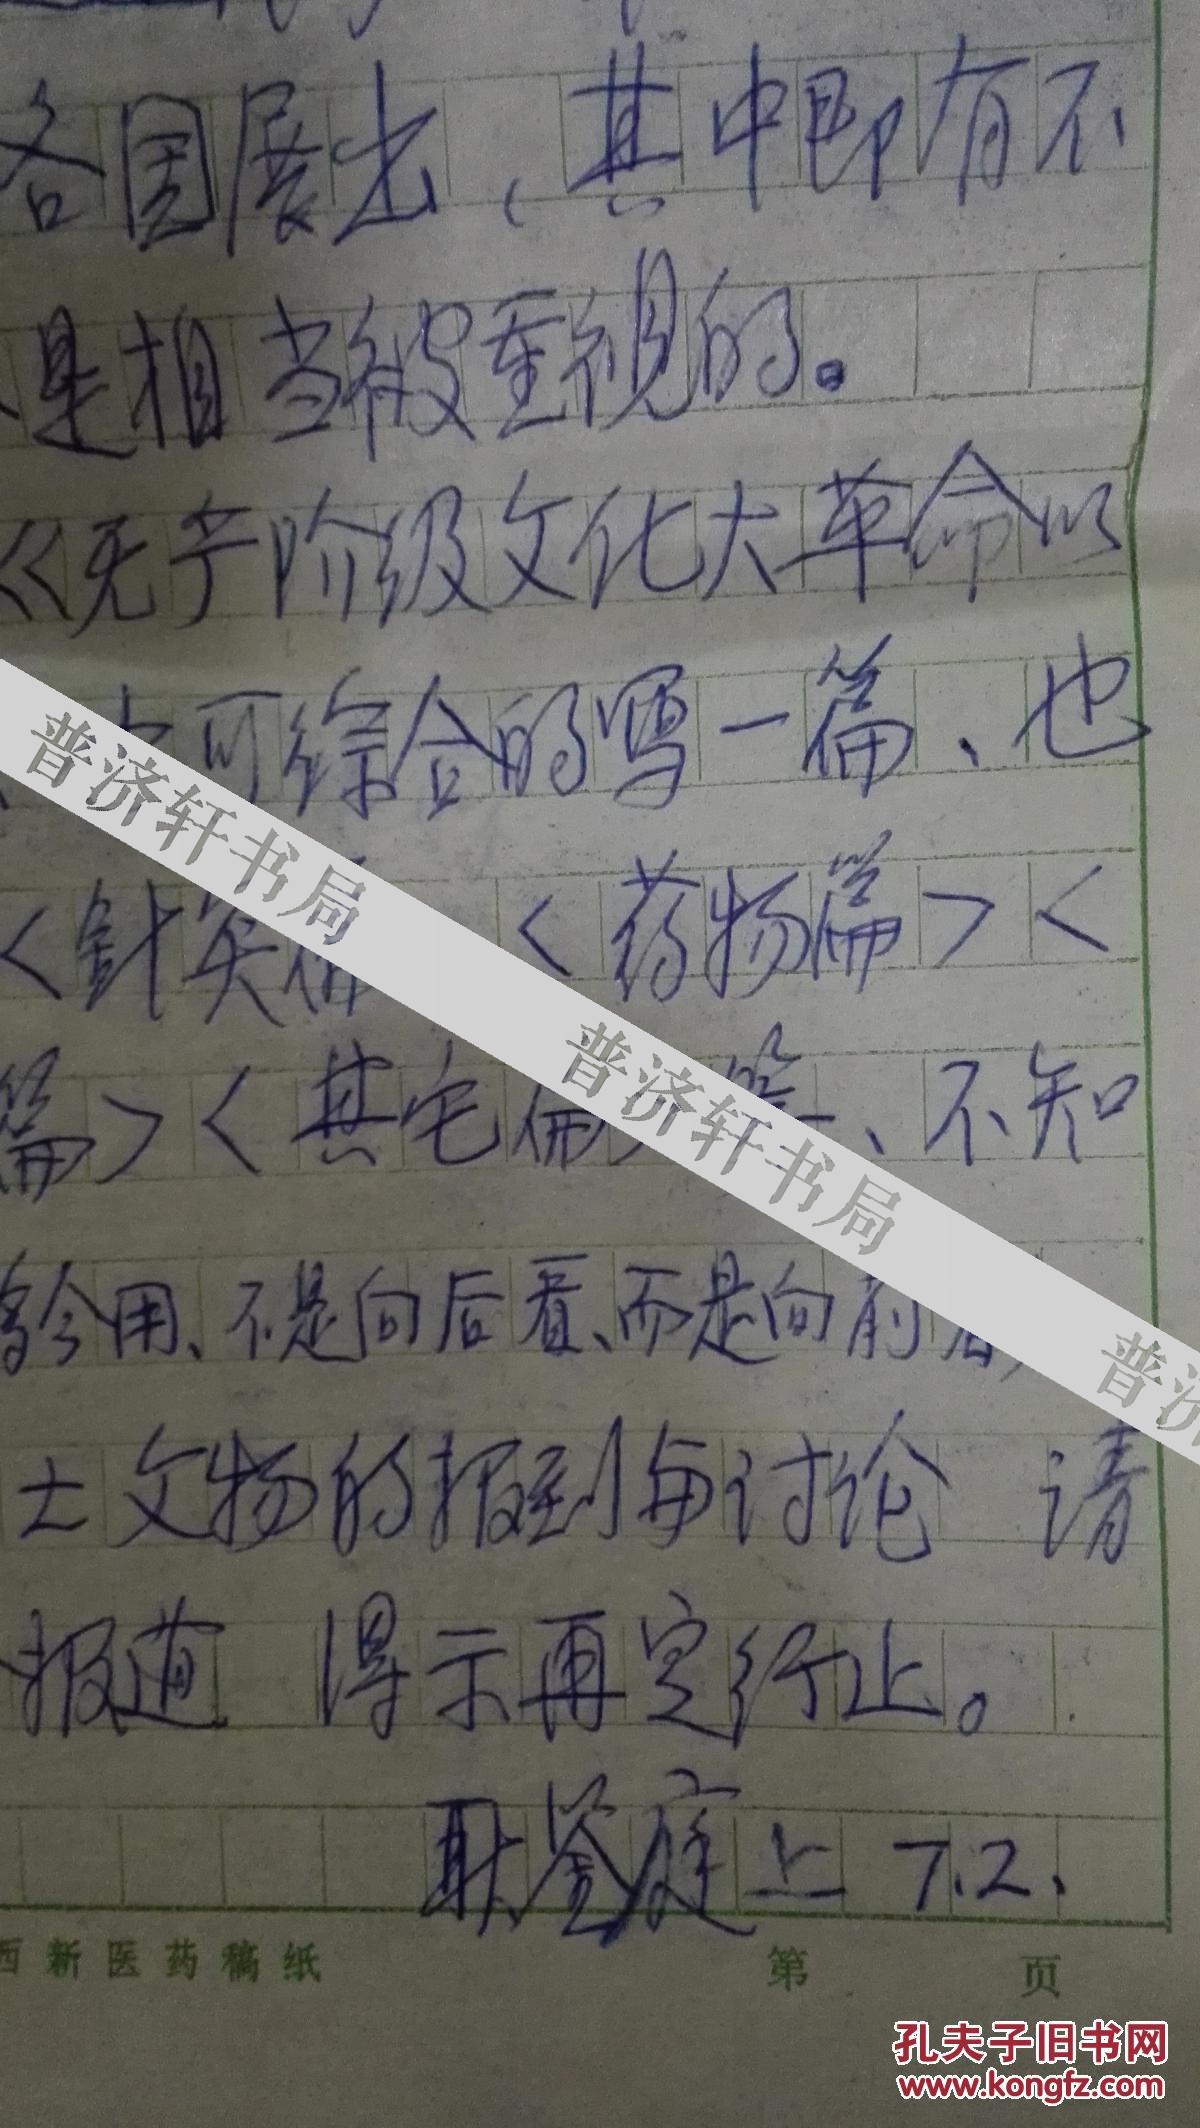 各国展出、其中即有不
是相当被重视的。
《无产阶级文化大革命以
可综合的写一篇、也
<針灸篇 <药物篇><
篇><其它篇>等、不知
今用、不是向后看、而是向前看
土文物的报到每讨论 请
报道 得示再定行止。
耿鉴庭上 7.2.
西新医药稿纸 第 页
普济轩书局
普济轩书局
普济
孔夫子旧书网
www.kongfz.com